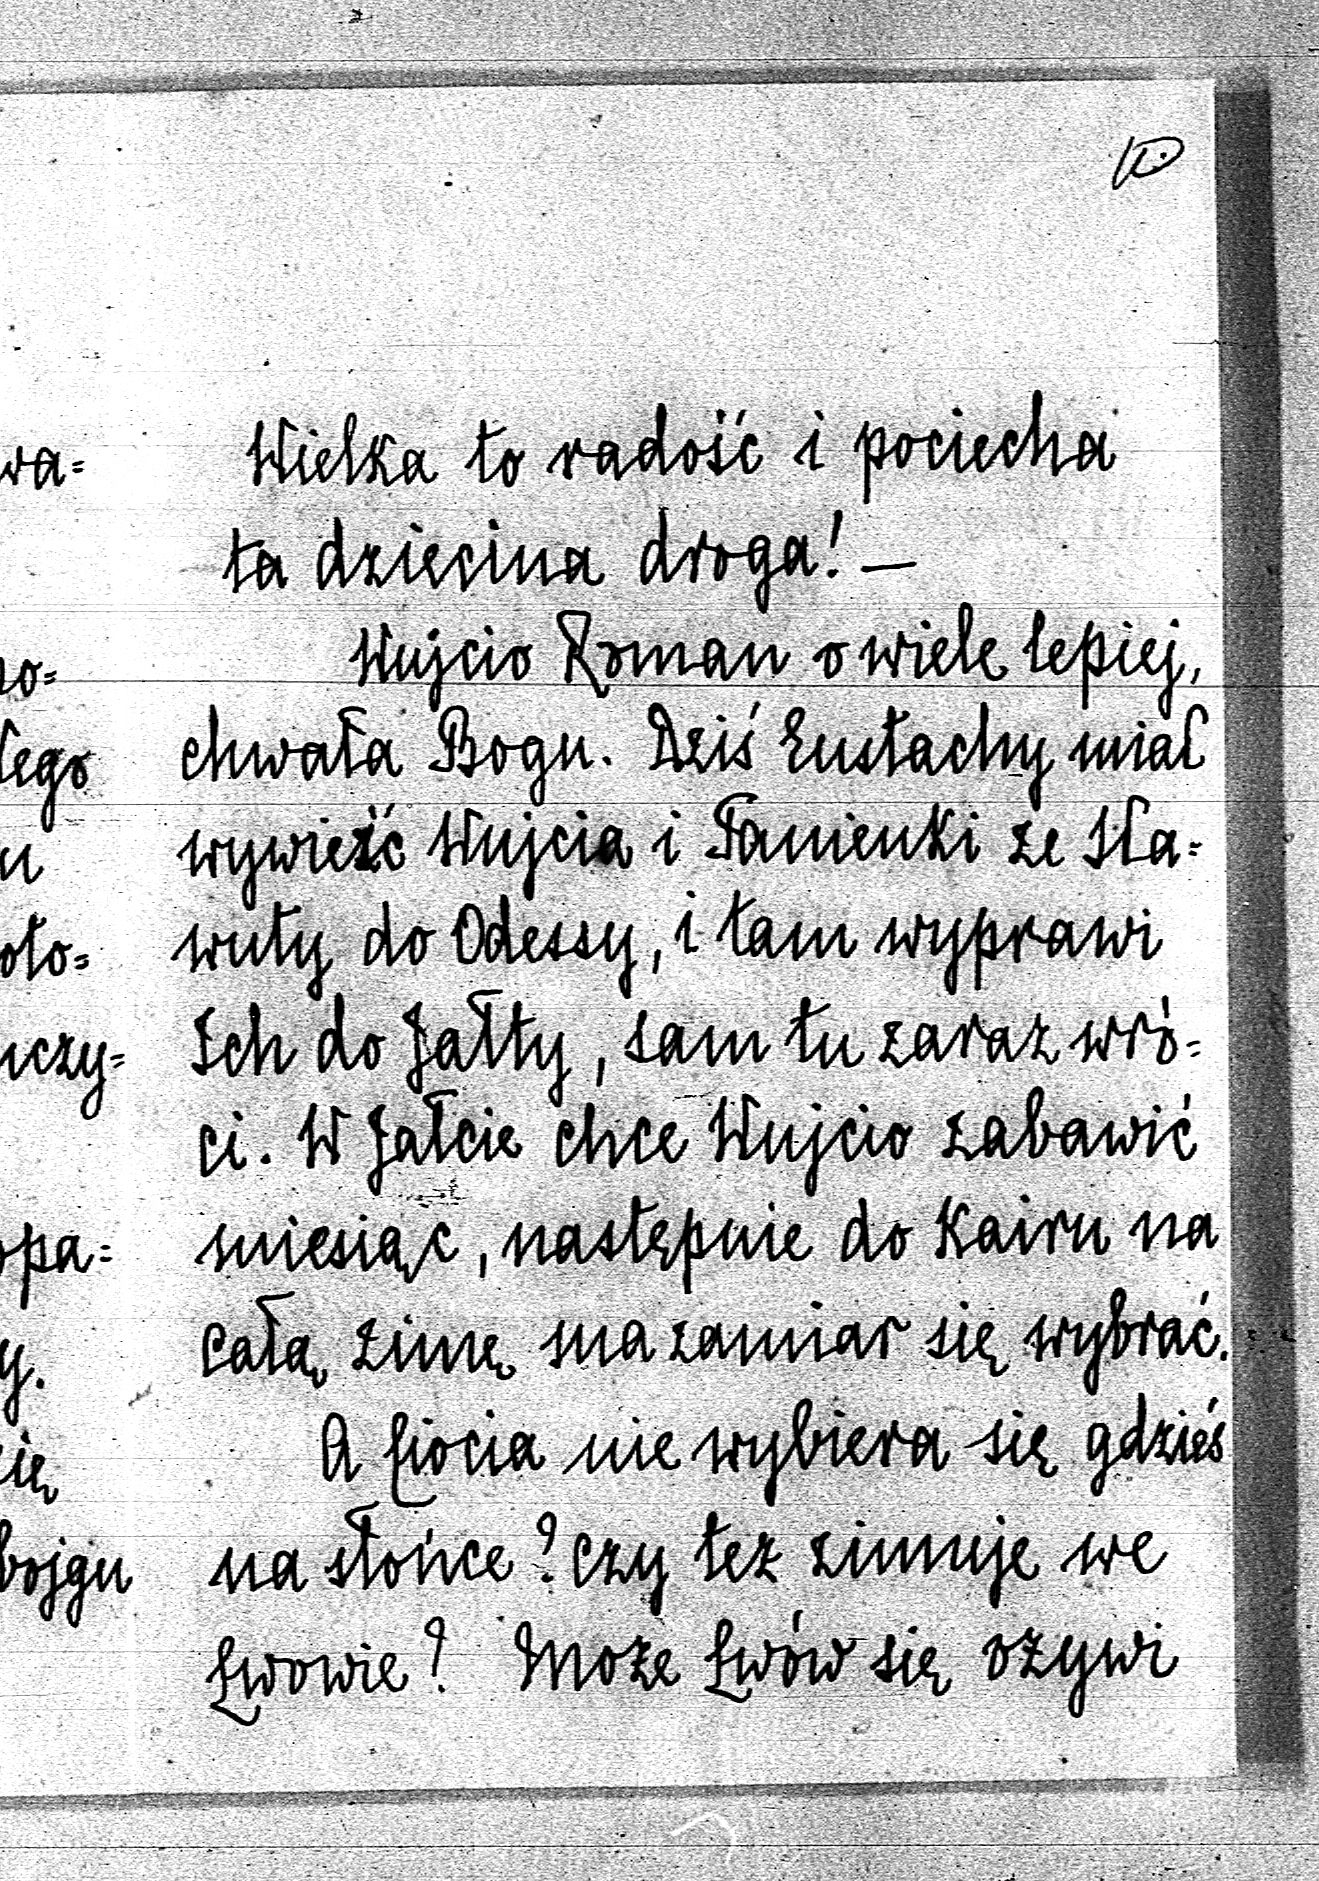 Wielka to radość i pociecha
ta dziecina droga! —
Wujcio Roman o wiele lepiej,
chwała Bogu. Dziś Eustachy miał
wywieźć Wujcia i Panienki ze Sła=
wuty do Odessy, i tam wyprawi
Ich do Jałty, sam tu zaraz wró=
ci. W Jałcie chce Wujcio zabawić
miesiąc, następnie do Kairu na
całą zimę ma zamiar się wybrać.
A Ciocia nie wybiera się gdzieś
na słońce? czy też zimuje we
Lwowie? Może Lwów się ożywi
wa=
no=
łego
u
oło=
nczy=
opa=
y.
się
bojgu